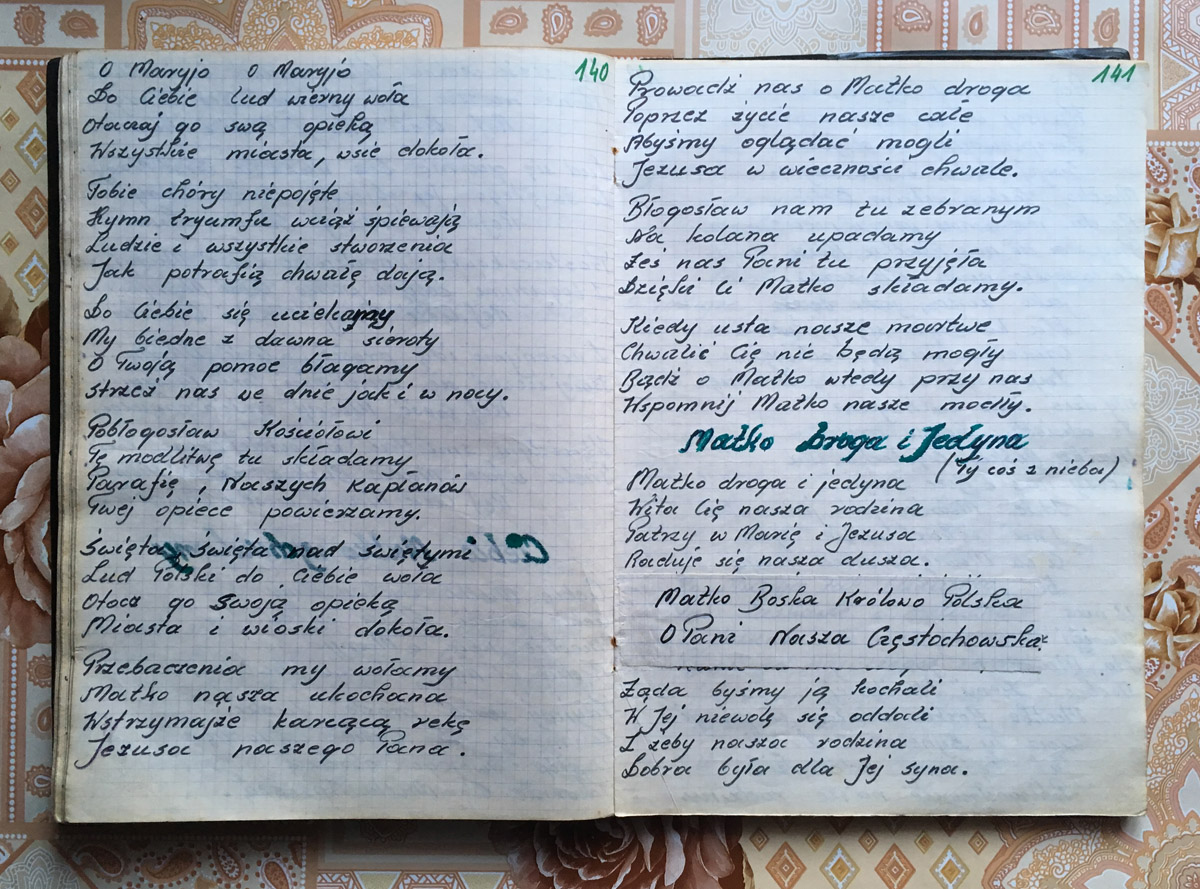 140
O Maryjo O Maryjo
Do Ciebie lud wierny woła
Otaczaj go swą opieką
Wszystkie miasta, wsie dokoła.
Tobie chóry niepojęte
Hymn tryumfu wciąż śpiewają
Ludzie i wszystkie stworzenia
Jak potrafią chwałę dają.
Do Ciebie się uciekamy
My biedne z dawna sieroty
O Twoją pomoc błagamy
strzeż nas we dnie jak i w nocy.
Pobłogosław Kościołowi
Tę modlitwę tu składamy
Parafię, Naszych Kapłanów
Twej opiece powierzamy.
Święta, święta nad świętymi
Lud Polski do Ciebie woła
Otocz go swoją opieką
Miasta i wioski dokoła.
Przebaczenia my wołamy
Matko nasza ukochana
Wstrzymajże karcącą rękę
Jezusa naszego Pana.
141
Prowadź nas o Matko droga
Poprzez życie nasze całe
Abyśmy oglądać mogli
Jezusa w wieczności chwale.
Błogosław nam tu zebranym
Na kolana upadamy
Żeś nas Pani tu przyjęła
Dzięki Ci Matko składamy.
Kiedy usta nasze martwe
Chwalić Cię nie będą mogły
Bądź o Matko wtedy przy nas
Wspomnij Matko nasze modły.
Matko Droga i Jedyna
(Ty coś z nieba)
Matko droga i jedyna
Wita Cię nasza rodzina
Patrzy w Marię i Jezusa
Raduje się nasza dusza.
Matko Boska Królowo Polska
O Pani Nasza Częstochowska.
Żąda byśmy ją kochali
W Jej niewolę się oddali
I żeby nasza rodzina
Dobra była dla Jej syna.